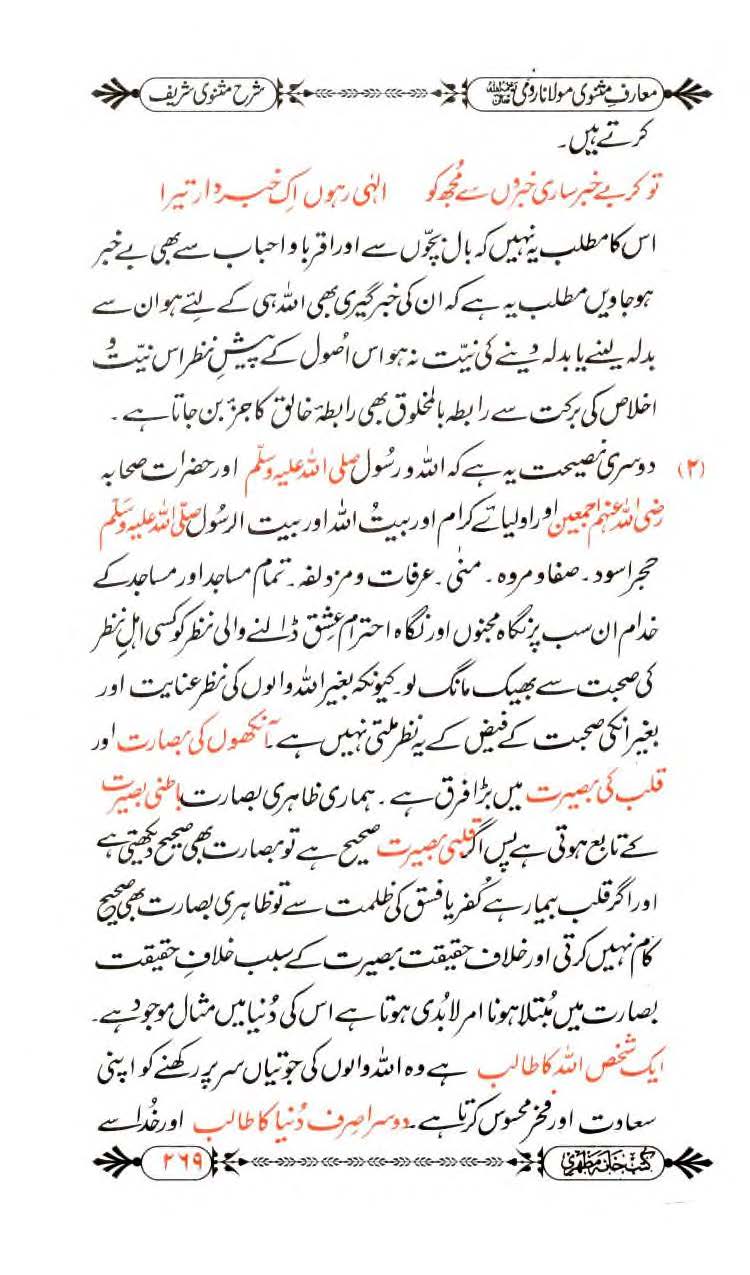 معارفِ مثنوی مولانا رومی رحمۃ اللہ علیہ شرح مثنوی شریف
کرتے ہیں۔
تو کر بے خبر ساری خبروں سے مُجھ کو الٰہی رہوں اِک خبردار تیرا
اس کا مطلب یہ نہیں کہ بال بچّوں سے اور اقربا و احباب سے بھی بے خبر
ہو جاویں مطلب یہ ہے کہ ان کی خبر گیری بھی اللہ ہی کے لئے ہو ان سے
بدلہ لینے یا بدلہ دینے کی نیّت نہ ہو اس اُصول کے پیشِ نظر اس نیّت و
اخلاص کی برکت سے رابطہ بالمخلوق بھی رابطۂ خالق کا جز بن جاتا ہے۔
(۲) دوسری نصیحت یہ ہے کہ اللہ و رسُول صلی اللہ علیہ وسلّم اور حضرات صحابہ
رضی اللہ عنہم اجمعین اور اولیائے کرام اور بیتُ اللہ اور بیت الرسُول صلّی اللہ علیہ وسلّم
حجر اسود۔ صفا و مروہ۔ منیٰ۔ عرفات و مزدلفہ۔ تمام مساجد اور مساجد کے
خدام ان سب پر نگاہ مجنوں اور نگاہ احترام عشق ڈالنے والی نظر کو کسی اہلِ نظر
کی صحبت سے بھیک مانگ لو۔ کیونکہ بغیر اللہ والوں کی نظر عنایت اور
بغیر انکی صحبت کے فیض کے یہ نظر ملتی نہیں ہے۔ آنکھوں کی بصارت اور
قلب کی بصیرت میں بڑا فرق ہے۔ ہماری ظاہری بصارت باطنی بصیرت
کے تابع ہوتی ہے پس اگر قلبی بصیرت صحیح ہے تو بصارت بھی صحیح دیکھتی ہے
اور اگر قلب بیمار ہے کُفر یا فسق کی ظلمت سے تو ظاہری بصارت بھی صحیح
کام نہیں کرتی اور خلاف حقیقت بصیرت کے سبب خلافِ حقیقت
بصارت میں مُبتلا ہونا امر لابُدی ہوتا ہے اس کی دُنیا میں مثال موجود ہے۔
ایک شخص اللہ کا طالب ہے وہ اللہ والوں کی جوتیاں سر پر رکھنے کو اپنی
سعادت اور فخر محسوس کرتا ہے۔ دوسرا صِرف دُنیا کا طالب اور خُدا سے
کتب خانہ مظہری ۲۶۹